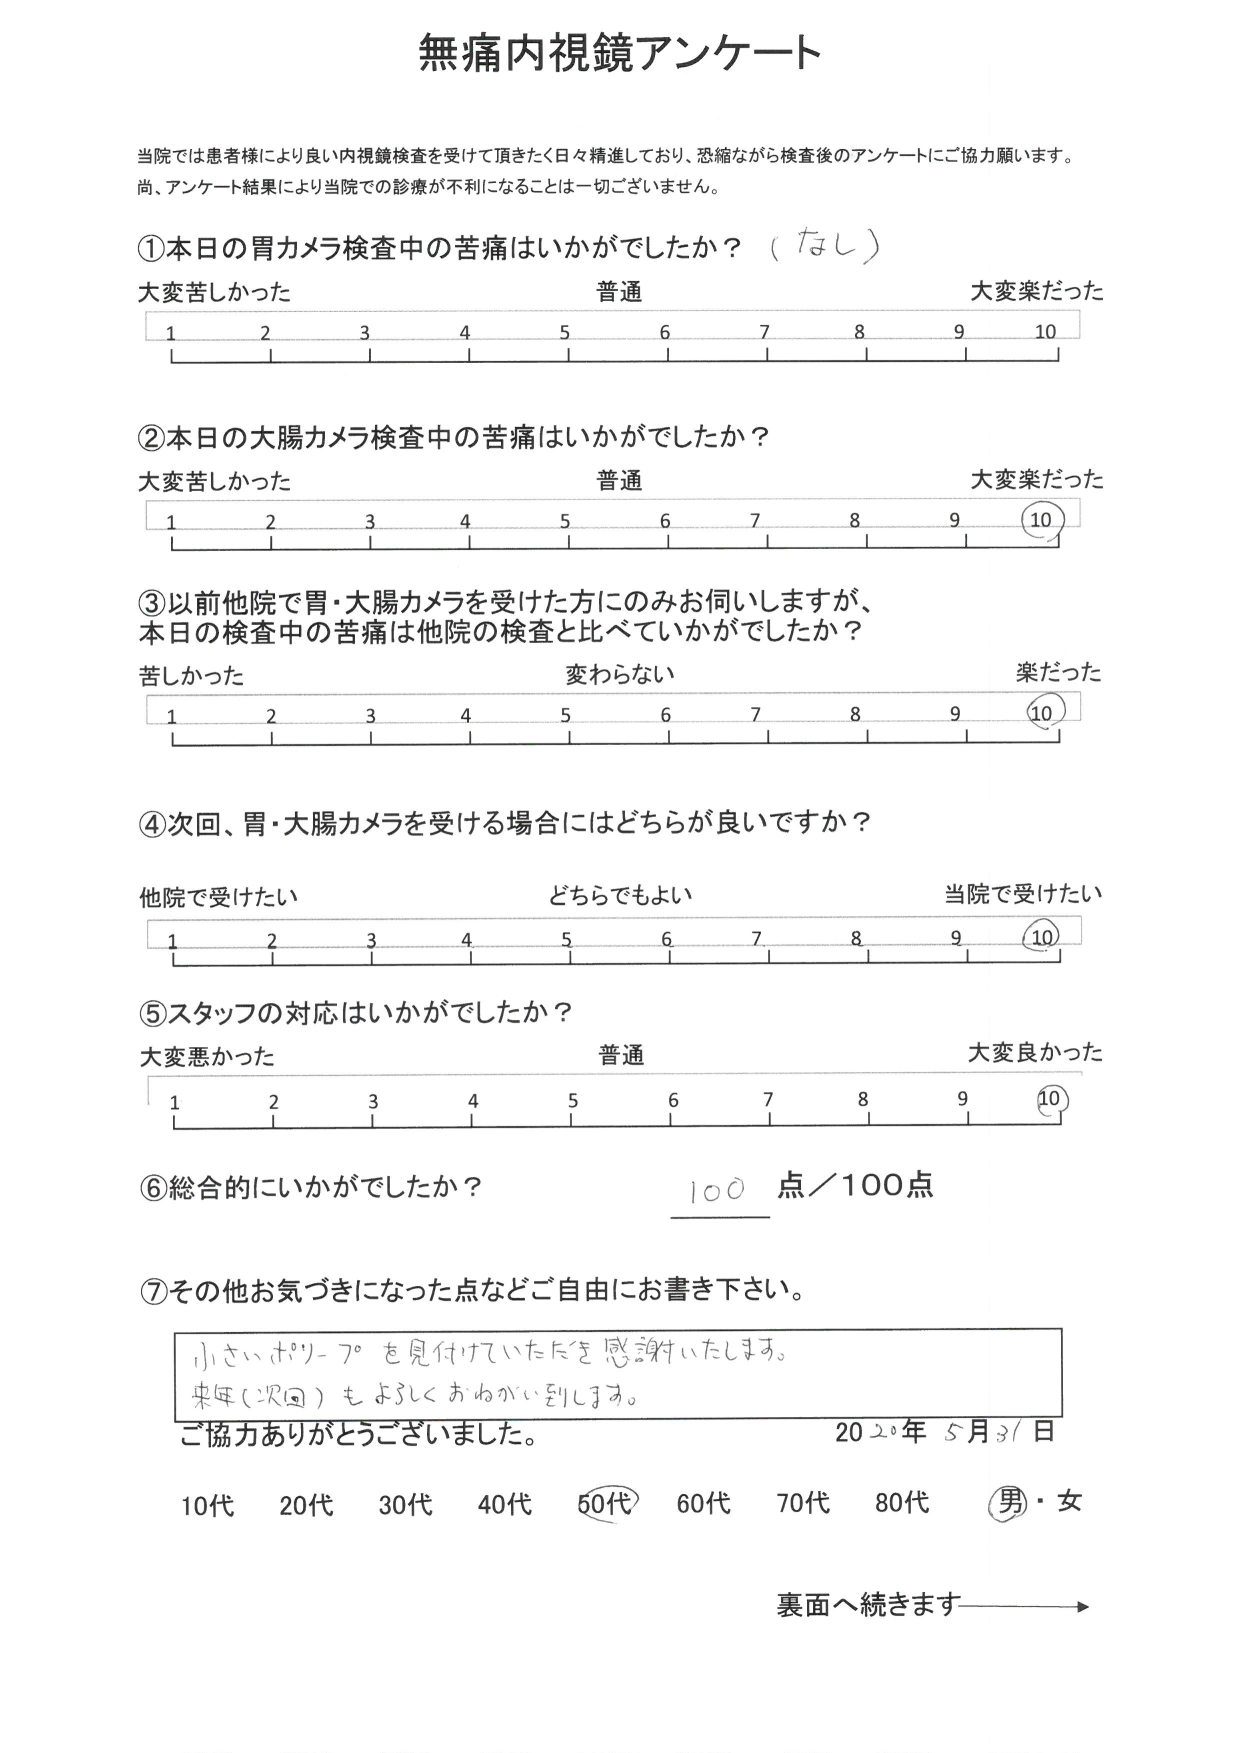 無痛内視鏡アンケート
当院では患者様により良い内視鏡検査を受けて頂きたく日々精進しており、恐縮ながら検査後のアンケートにご協力願います。
尚、アンケート結果により当院での診療が不利になることは一切ございません。
①本日の胃カメラ検査中の苦痛はいかがでしたか？ （なし）
大変苦しかった 普通 大変楽だった
1 2 3 4 5 6 7 8 9 10
②本日の大腸カメラ検査中の苦痛はいかがでしたか？
大変苦しかった 普通 大変楽だった
1 2 3 4 5 6 7 8 9 10
③以前他院で胃・大腸カメラを受けた方にのみお伺いしますが、
本日の検査中の苦痛は他院の検査と比べていかがでしたか？
苦しかった 変わらない 楽だった
1 2 3 4 5 6 7 8 9 10
④次回、胃・大腸カメラを受ける場合にはどちらが良いですか？
他院で受けたい どちらでもよい 当院で受けたい
1 2 3 4 5 6 7 8 9 10
⑤スタッフの対応はいかがでしたか？
大変悪かった 普通 大変良かった
1 2 3 4 5 6 7 8 9 10
⑥総合的にいかがでしたか？ 100 点／100点
⑦その他お気づきになった点などご自由にお書き下さい。
小さいポリープを見付けていただき感謝いたします。
来年（次回）もよろしくおねがい到します。
ご協力ありがとうございました。 2020年 5月31日
10代 20代 30代 40代 50代 60代 70代 80代 男・女
裏面へ続きます